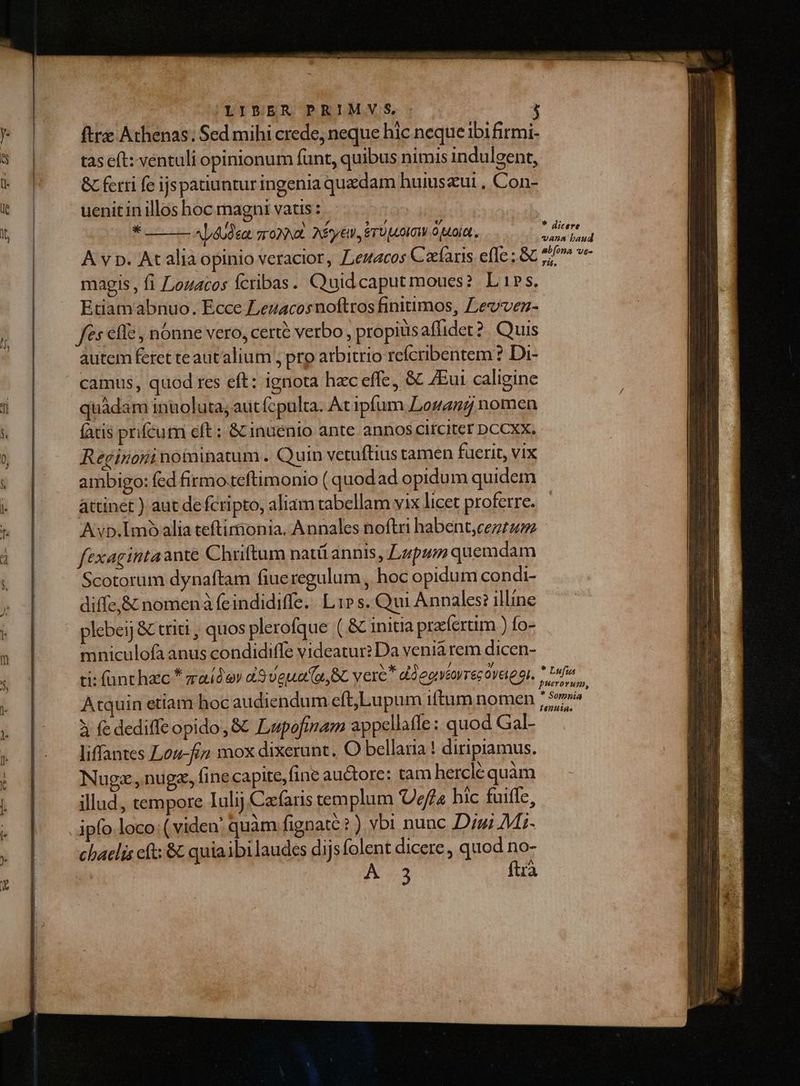 LIBER PRIMVS. 5
ſtræ Athenas. Sed mihi crede, neque hic neque ibi firmi-
tas eſt: ventuli opinionum ſunt, quibus nimis indulgent,
& ferri ſe ijs patiuntur ingenia quædam huius æui. Con-
uenit in illos hoc magni vatis:
* ——— ψεύδεα πολλὰ λέγειν, ἐτύμοισιν ὁμοῖα.
* dicere
vana haud
abſona ve-
ris.
AVD. At alia opinio veracior, Leuacos Cæſaris eſſe: &
magis, ſi Louacos ſcribas. Quid caput moues? LIPS.
Etiam abnuo. Ecce Leuacos noſtros finitimos, Levven-
ſes eſſe, nónne vero, certè verbo, propiùs affidet? Quis
autem feret te aut alium, pro arbitrio reſcribentem? Di-
camus, quod res eſt: ignota hæc eſſe, & Æui caligine
quàdam inuoluta, aut ſepulta. At ipſum Louanij nomen
ſatis priſcum eſt: & inuenio ante annos circiter DCCXX.
Reginoni nominatum. Quin vetuſtius tamen fuerit, vix
ambigo: ſed firmo teſtimonio (quod ad opidum quidem
attinet) aut deſcripto, aliam tabellam vix licet proferre.
AVD. Imò alia teſtimonia. Annales noſtri habent, centum
ſexaginta ante Chriſtum natū annis, Lupum quemdam
Scotorum dynaſtam ſiue regulum, hoc opidum condi-
diſſe, & nomen à ſe indidiſſe. LIPS. Qui Annales? illíne
plebeij & triti, quos pleroſque (& initia præſertim) ſo-
mniculoſa anus condidiſſe videatur? Da veniā rem dicen-
ti: ſunt hæc * παίδων ἀθύρματα, & verè * ἀδρανέωντες ὄνειροι.
* Luſus
puerorum,
* Somnia
tenuia.
Atquin etiam hoc audiendum eſt, Lupum iſtum nomen
à ſe dediſſe opido, & Lupoſinam appellaſſe: quod Gal-
liſſantes Lou-ſin mox dixerunt. O bellaria! diripiamus.
Nugæ, nugæ, ſine capite, ſine auctore: tam herclè quàm
illud, tempore Iulij Cæſaris templum Veſtæ hîc fuiſſe,
ipſo loco (viden' quàm ſignatè?) vbi nunc Diui Mi-
chaelis eſt: & quia ibi laudes dijs ſolent dicere, quod no-
A 3 ſtrà